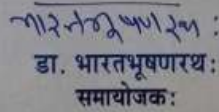 भारतभूषण रथ:
डा. भारतभूषणरथ:
समायोजक: